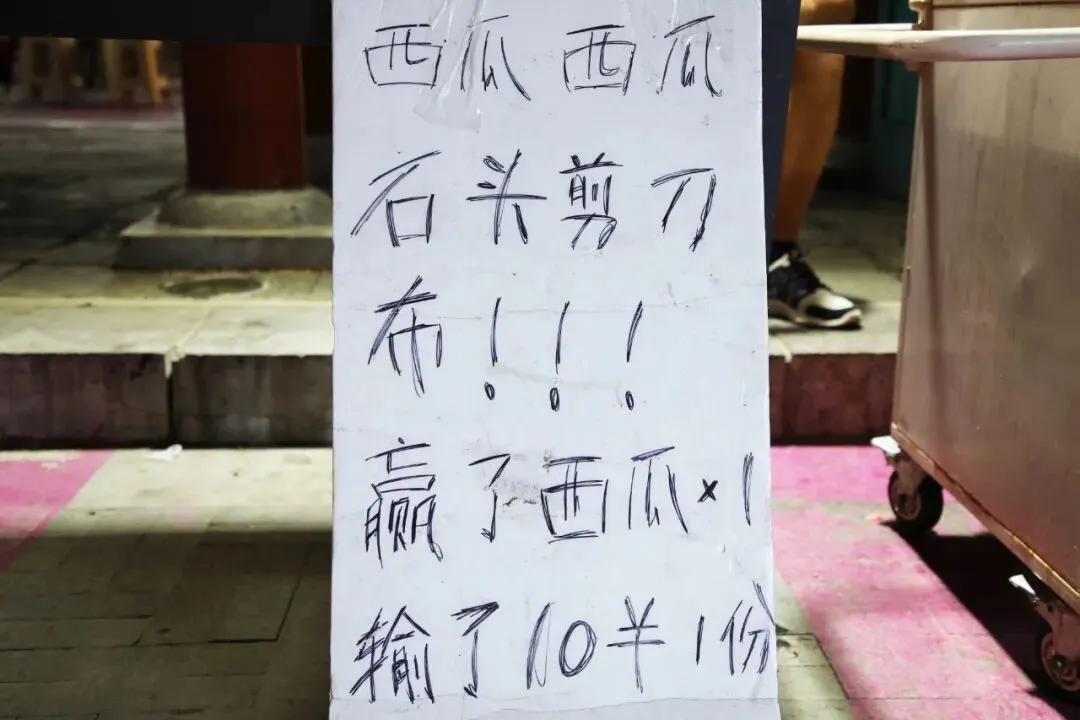 西瓜西瓜
石头剪刀
布!!!
赢了西瓜×1
输了10羊1份